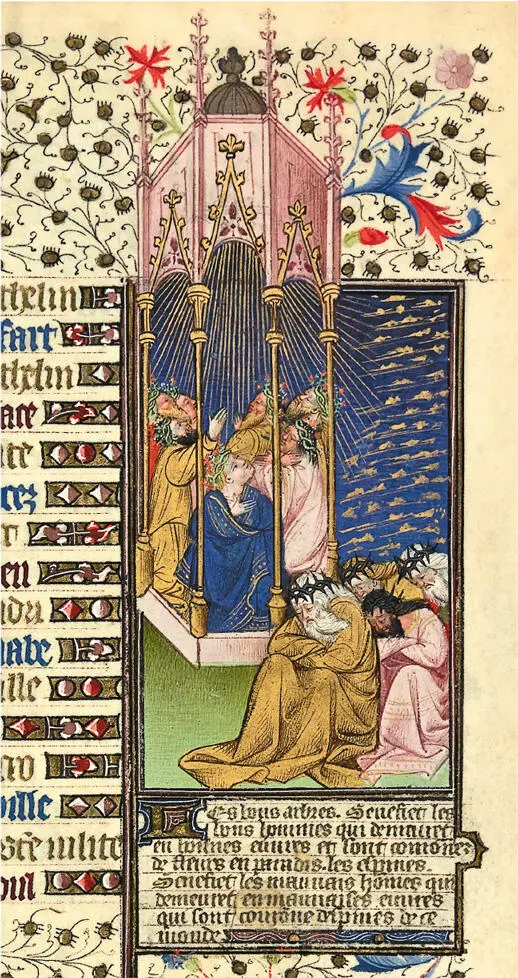 thelin
fart
thelin
ace
te
cez
en
ndri
nabe
ille
ville
Les bons arbres. Senefiet les
bons hommes qui demeuret
en bonnes euvres et sont coronnez
de fleurs en paradis. les espines.
Senefiet les mauvais homes qui
demeuret en mauvaises euvres
qui sont courone despines de ce
monde